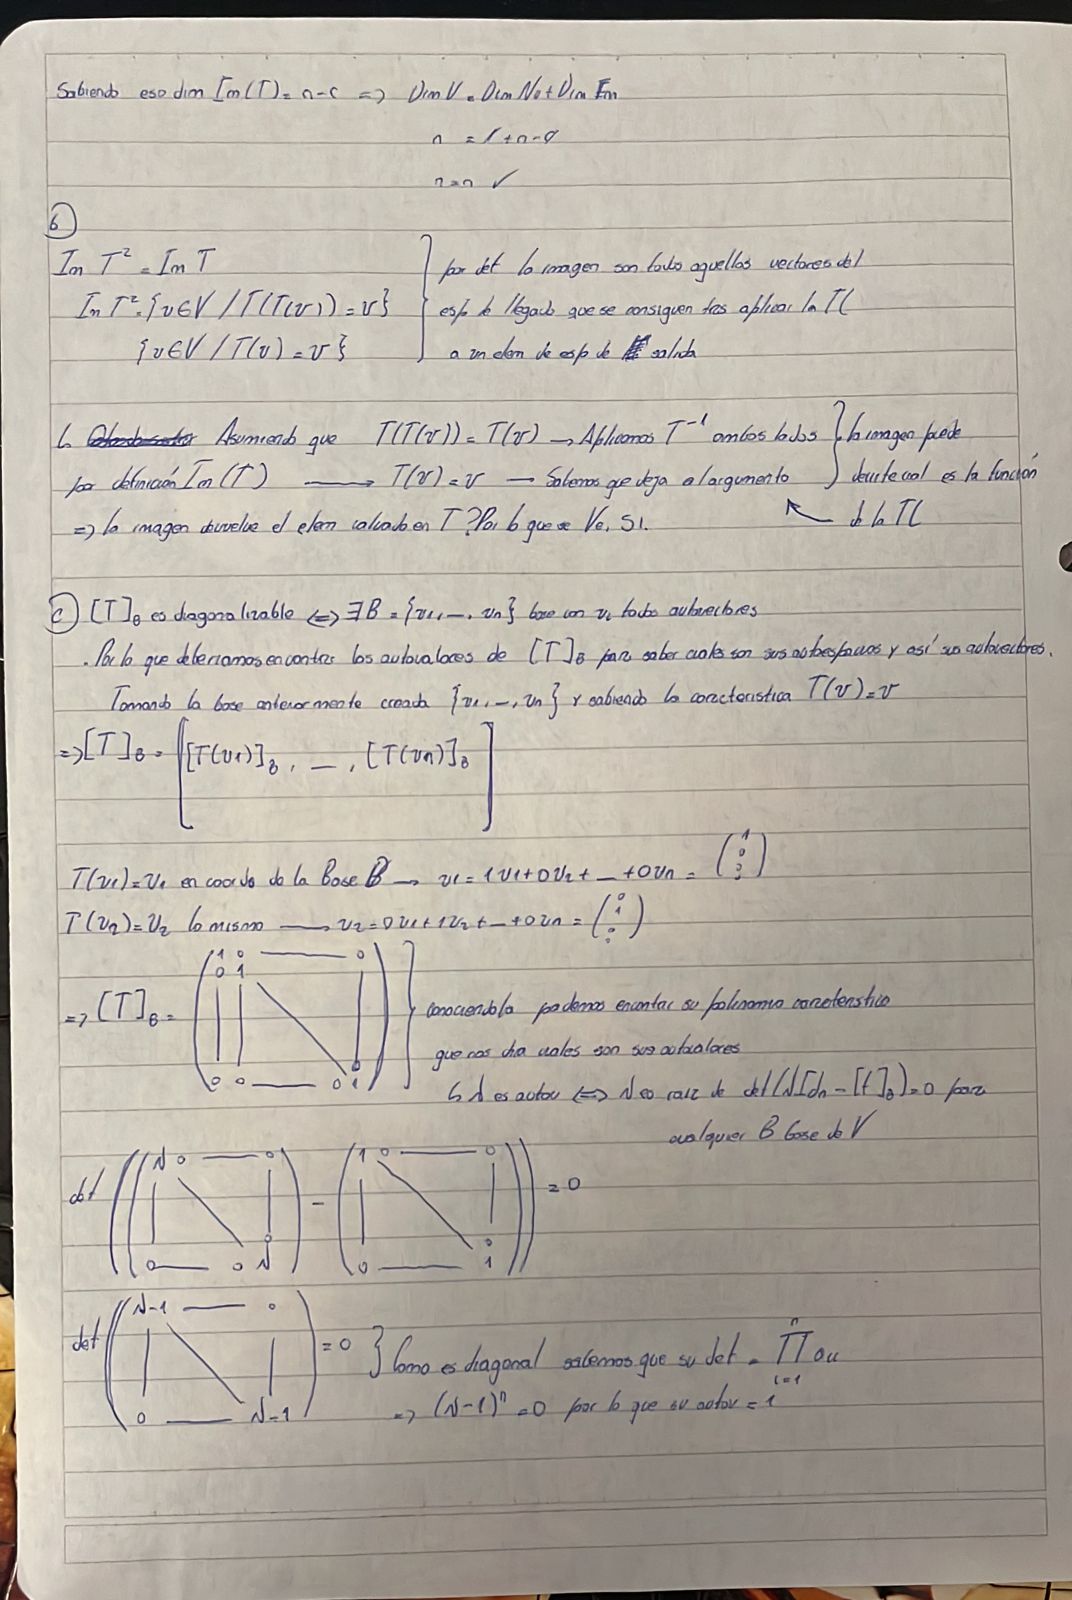 Sabiendo eso dim Im(T) = n-r => Dim V = Dim Nu + Dim Im
n = r + n - r
n = n ✓
b
Im T² = Im T
Im T² = {v∈V / T(T(v)) = v}
{v∈V / T(v) = v}
por def la imagen son todos aquellos vectores del
esp de llegada que se consiguen tras aplicar la TL
a un elem de esp de salida
↳ Asumiendo que T(T(v)) = T(v) → Aplicamos T⁻¹ ambos lados
por definición Im(T) → T(v) = v → Sabemos que deja al argumento
=> la imagen devuelve el elem valuado en T? Por lo que se ve, SI.
la imagen puede
decirte cual es la función
de la TL
c [T]B es diagonalizable <=> ∃ B = {v1, _, vn} base con vi todos autovectores
. Por lo que deberiamos encontrar los autovalores de [T]B para saber cuales son sus autoespacios y así sus autovectores.
Tomando la base anteriormente creada {v1, _, vn} y sabiendo la caracteristica T(v) = v
=> [T]B = [ [T(v1)]B, _, [T(vn)]B ]
T(v1) = v1 en coords de la Base B → v1 = 1v1 + 0v2 + _ + 0vn = (1 0 0)
T(v2) = v2 lo mismo → v2 = 0v1 + 1v2 + _ + 0vn = (0 1 0)
=> [T]B = (1 0 — 0
0 1
0 0 — 0 1)
conociendola podemos encontrar su polinomio caracteristico
que nos dra cuales son sus autovalores
↳ λ es autov <=> λ es raiz de det(λIdn - [t]B) = 0 para
cualquier B base de V
det ((λ 0 — 0
0 — 0 λ) - (1 0 — 0
0 — 0 1)) = 0
det ((λ-1 — 0
0 — λ-1) = 0 } Como es diagonal sabemos que su det = ∏ i=1 n aii
=> (λ-1)ⁿ = 0 por lo que su autov = 1